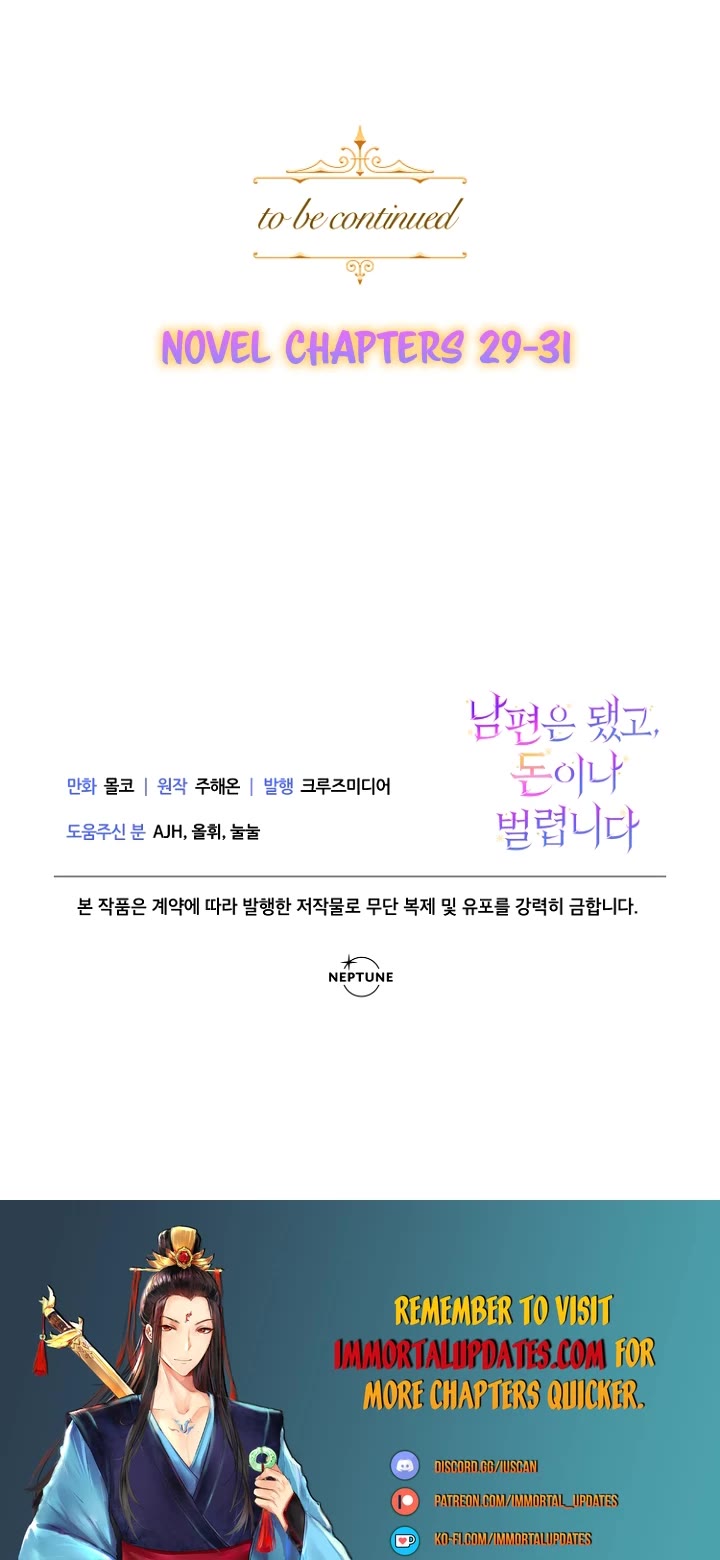 to be continued
NOVEL CHAPTERS 29-31
남편은 됐고,
돈이나
벌렵니다
만화 몰코 | 원작 주해온 | 발행 크루즈미디어
도움주신 분 AJH, 올휘, 눌눌
본 작품은 계약에 따라 발행한 저작물로 무단 복제 및 유포를 강력히 금합니다.
NEPTUNE
REMEMBER TO VISIT
IMMORTALUPDATES.COM FOR
MORE CHAPTERS QUICKER.
DISCORD.GG/IUSCAN
PATREON.COM/IMMORTAL_UPDATES
KO-FI.COM/IMMORTALUPDATES